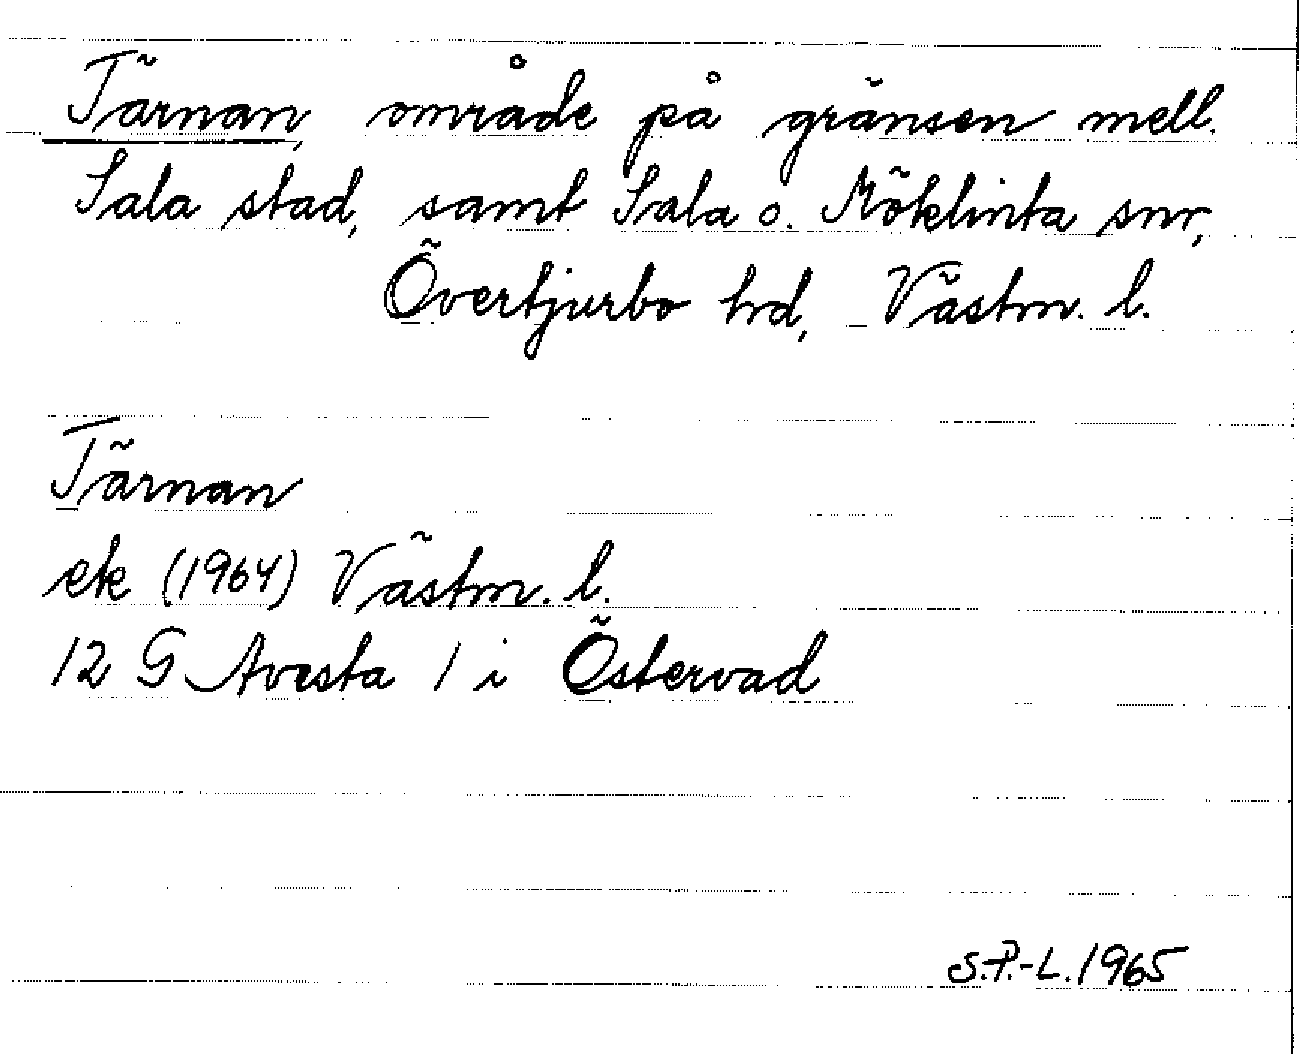 Tärnan, område på gränsen mell.
Sala stad, samt Sala o. Möklinta snr,
Övertjurbo hd, Västm. l.
Tärnan
ek (1964) Västm. l.
12 G Avesta 1 i Östervad
S.P.-L. 1965